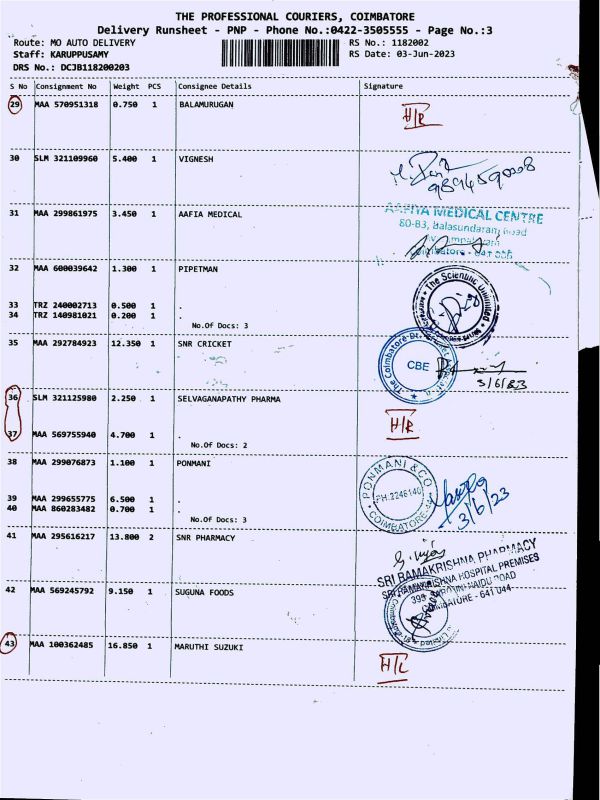 THE PROFESSIONAL COURIERS, COIMBATORE
Delivery Runsheet - PNP - Phone No.:0422-3505555 - Page No.:3
Route: MO AUTO DELIVERY RS No.: 1182002
Staff: KARUPPUSAMY RS Date: 03-Jun-2023
DRS No.: DCJB118200203
S No Consignment No Weight PCS Consignee Details Signature
29 MAA 570951318 0.750 1 BALAMURUGAN
30 SLM 321109960 5.400 1 VIGNESH
31 MAA 299861975 3.450 1 AAFIA MEDICAL
AAFIYA MEDICAL CENTRE
80-B3, Balasundaram Road
32 MAA 600039642 1.300 1 PIPETMAN
The Scientific Unlimited
33 TRZ 240002713 0.500 1 .
34 TRZ 140981021 0.200 1 .
No.Of Docs: 3
35 MAA 292784923 12.350 1 SNR CRICKET
CBE
3/6/23
36 SLM 321125980 2.250 1 SELVAGANAPATHY PHARMA
37 MAA 569755940 4.700 1 .
No.Of Docs: 2
38 MAA 299076873 1.100 1 PONMANI
PONMANI & CO
PH:2246140
COIMBATORE-44
3/6/23
39 MAA 299655775 6.500 1 .
40 MAA 860283482 0.700 1 .
No.Of Docs: 3
41 MAA 295616217 13.800 2 SNR PHARMACY
SRI RAMAKRISHNA PHARMACY
SRI RAMAKRISHNA HOSPITAL PREMISES
395 SAROJINI NAIDU ROAD
COIMBATORE - 641 044
42 MAA 569245792 9.150 1 SUGUNA FOODS
43 MAA 100362485 16.850 1 MARUTHI SUZUKI